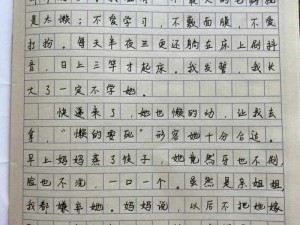 是太懒；不爱学习，不敷面膜，不爱
打扮。每天半夜三更还躺在床上刷抖
音，日上三竿才起床。我发誓，我长
大了一定不学她。
快递来了，她也懒的动，让我去
拿，“懒的要死”形容她十分合适。
早上妈妈蒸了饺子，她竟然牙也不刷，
脸也不洗，一口一个。虽然是亲姐姐，
我都嫌弃她。妈妈说，以后不把她嫁